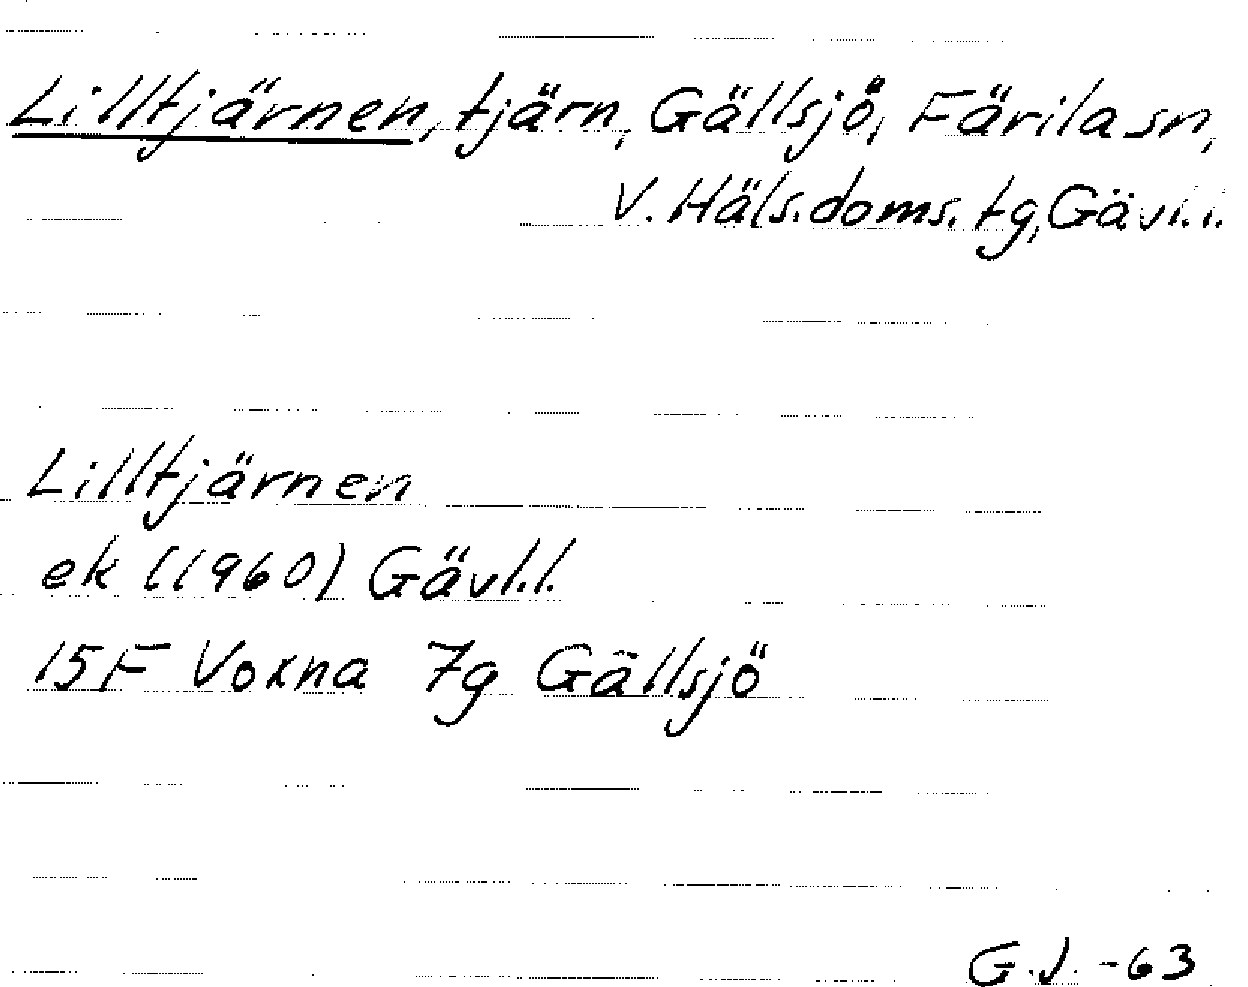 Lilltjärnen, tjärn, Gällsjö, Färila sn,
V. Häls. doms. tg, Gävl.l.
Lilltjärnen
ek (1960) Gävl.l.
15F Voxna 7g Gällsjö
G.J. -63